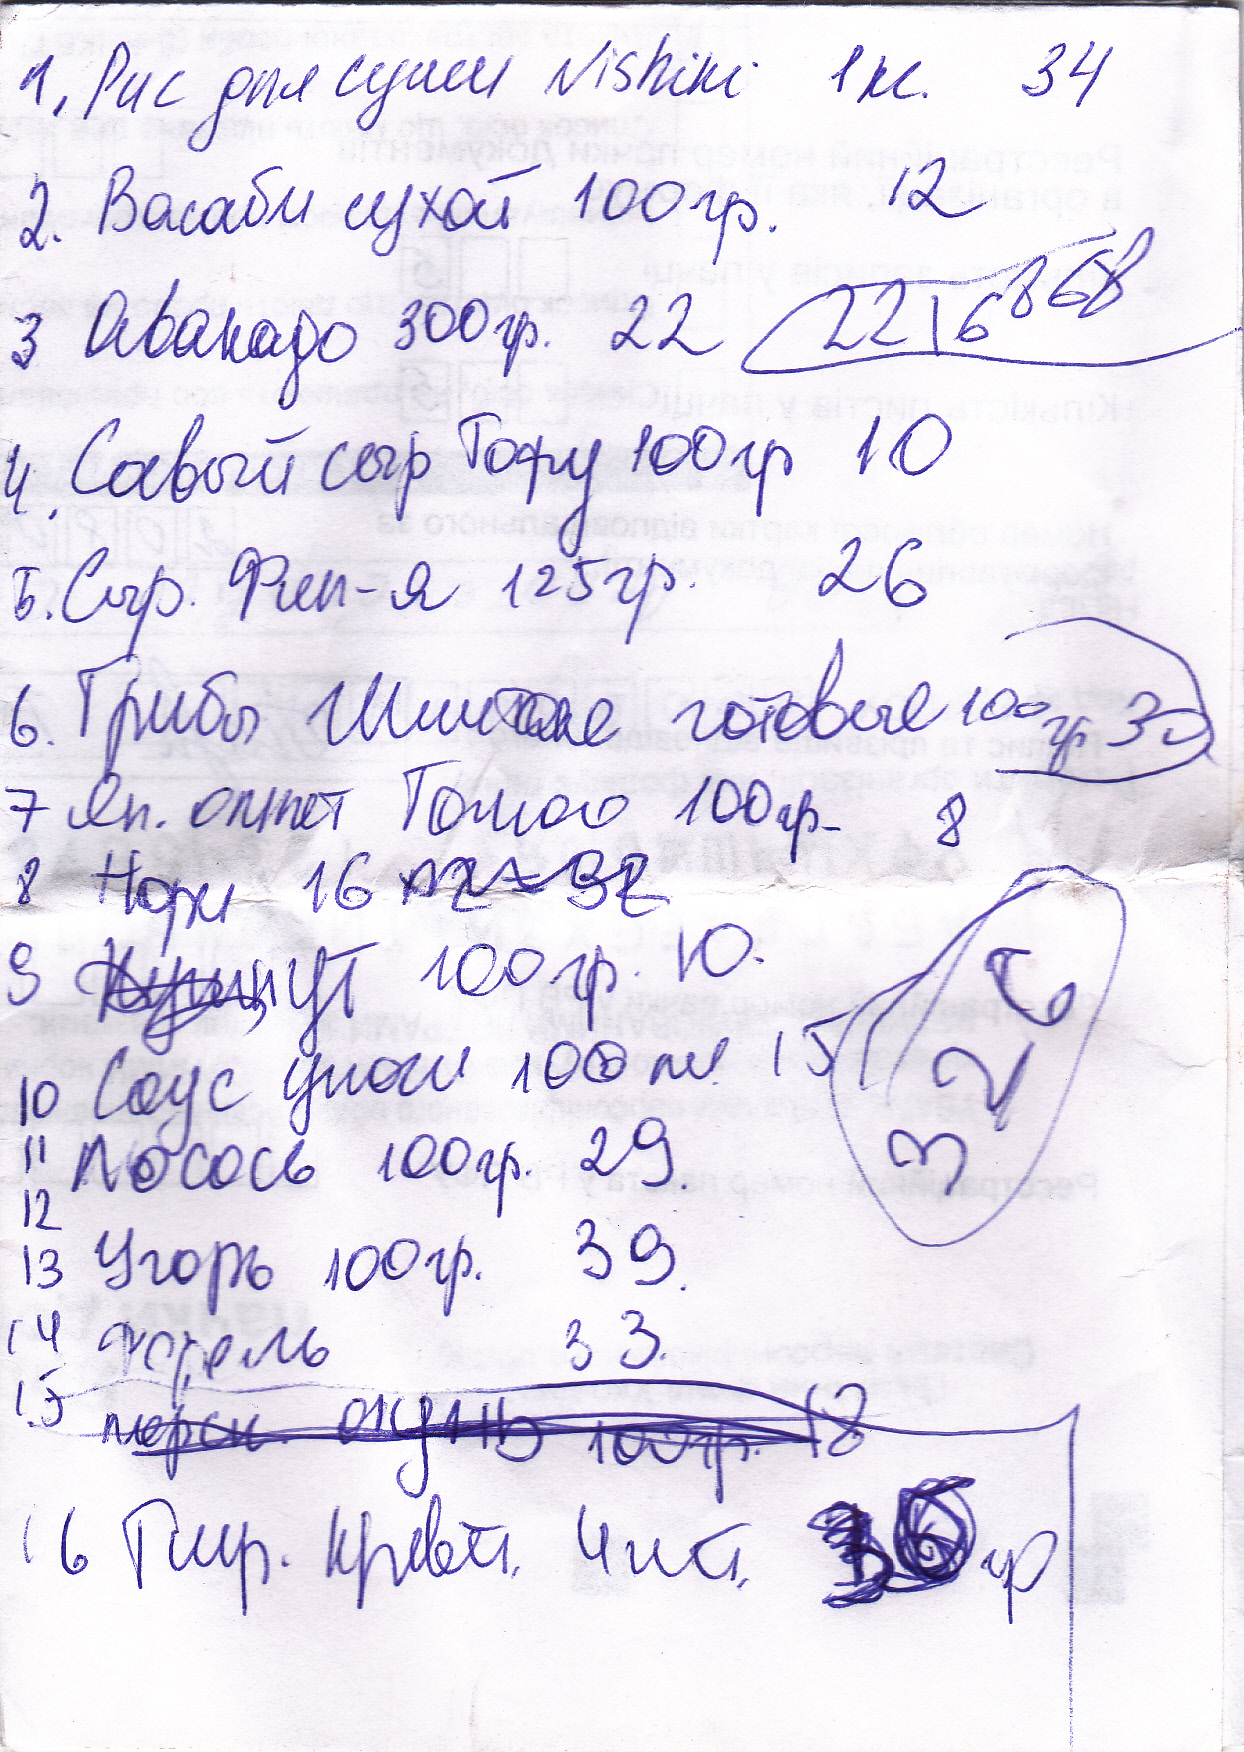 1. Рис для суши Nishiki 1 кг. 34
2. Васаби сухой 100 гр. 12
3 Авакадо 300 гр. 22
4. Соевый сыр Тофу 100 гр 10
5. Сыр. Фил-я 125 гр. 26
6. Грибы Шиитаке готовые 100 гр 30
7 Яп. омлет Томаго 100 гр- 8
8 Нори 16
9 Кунжут 100 гр. 10.
10 Соус унаги 100 мл. 15
326
11 Лосось 100 гр. 29.
12
13 Угорь 100 гр. 39.
14 Форель 33.
15 морск. окунь 100 гр. 18
16 Тигр. кревет. чист. гр